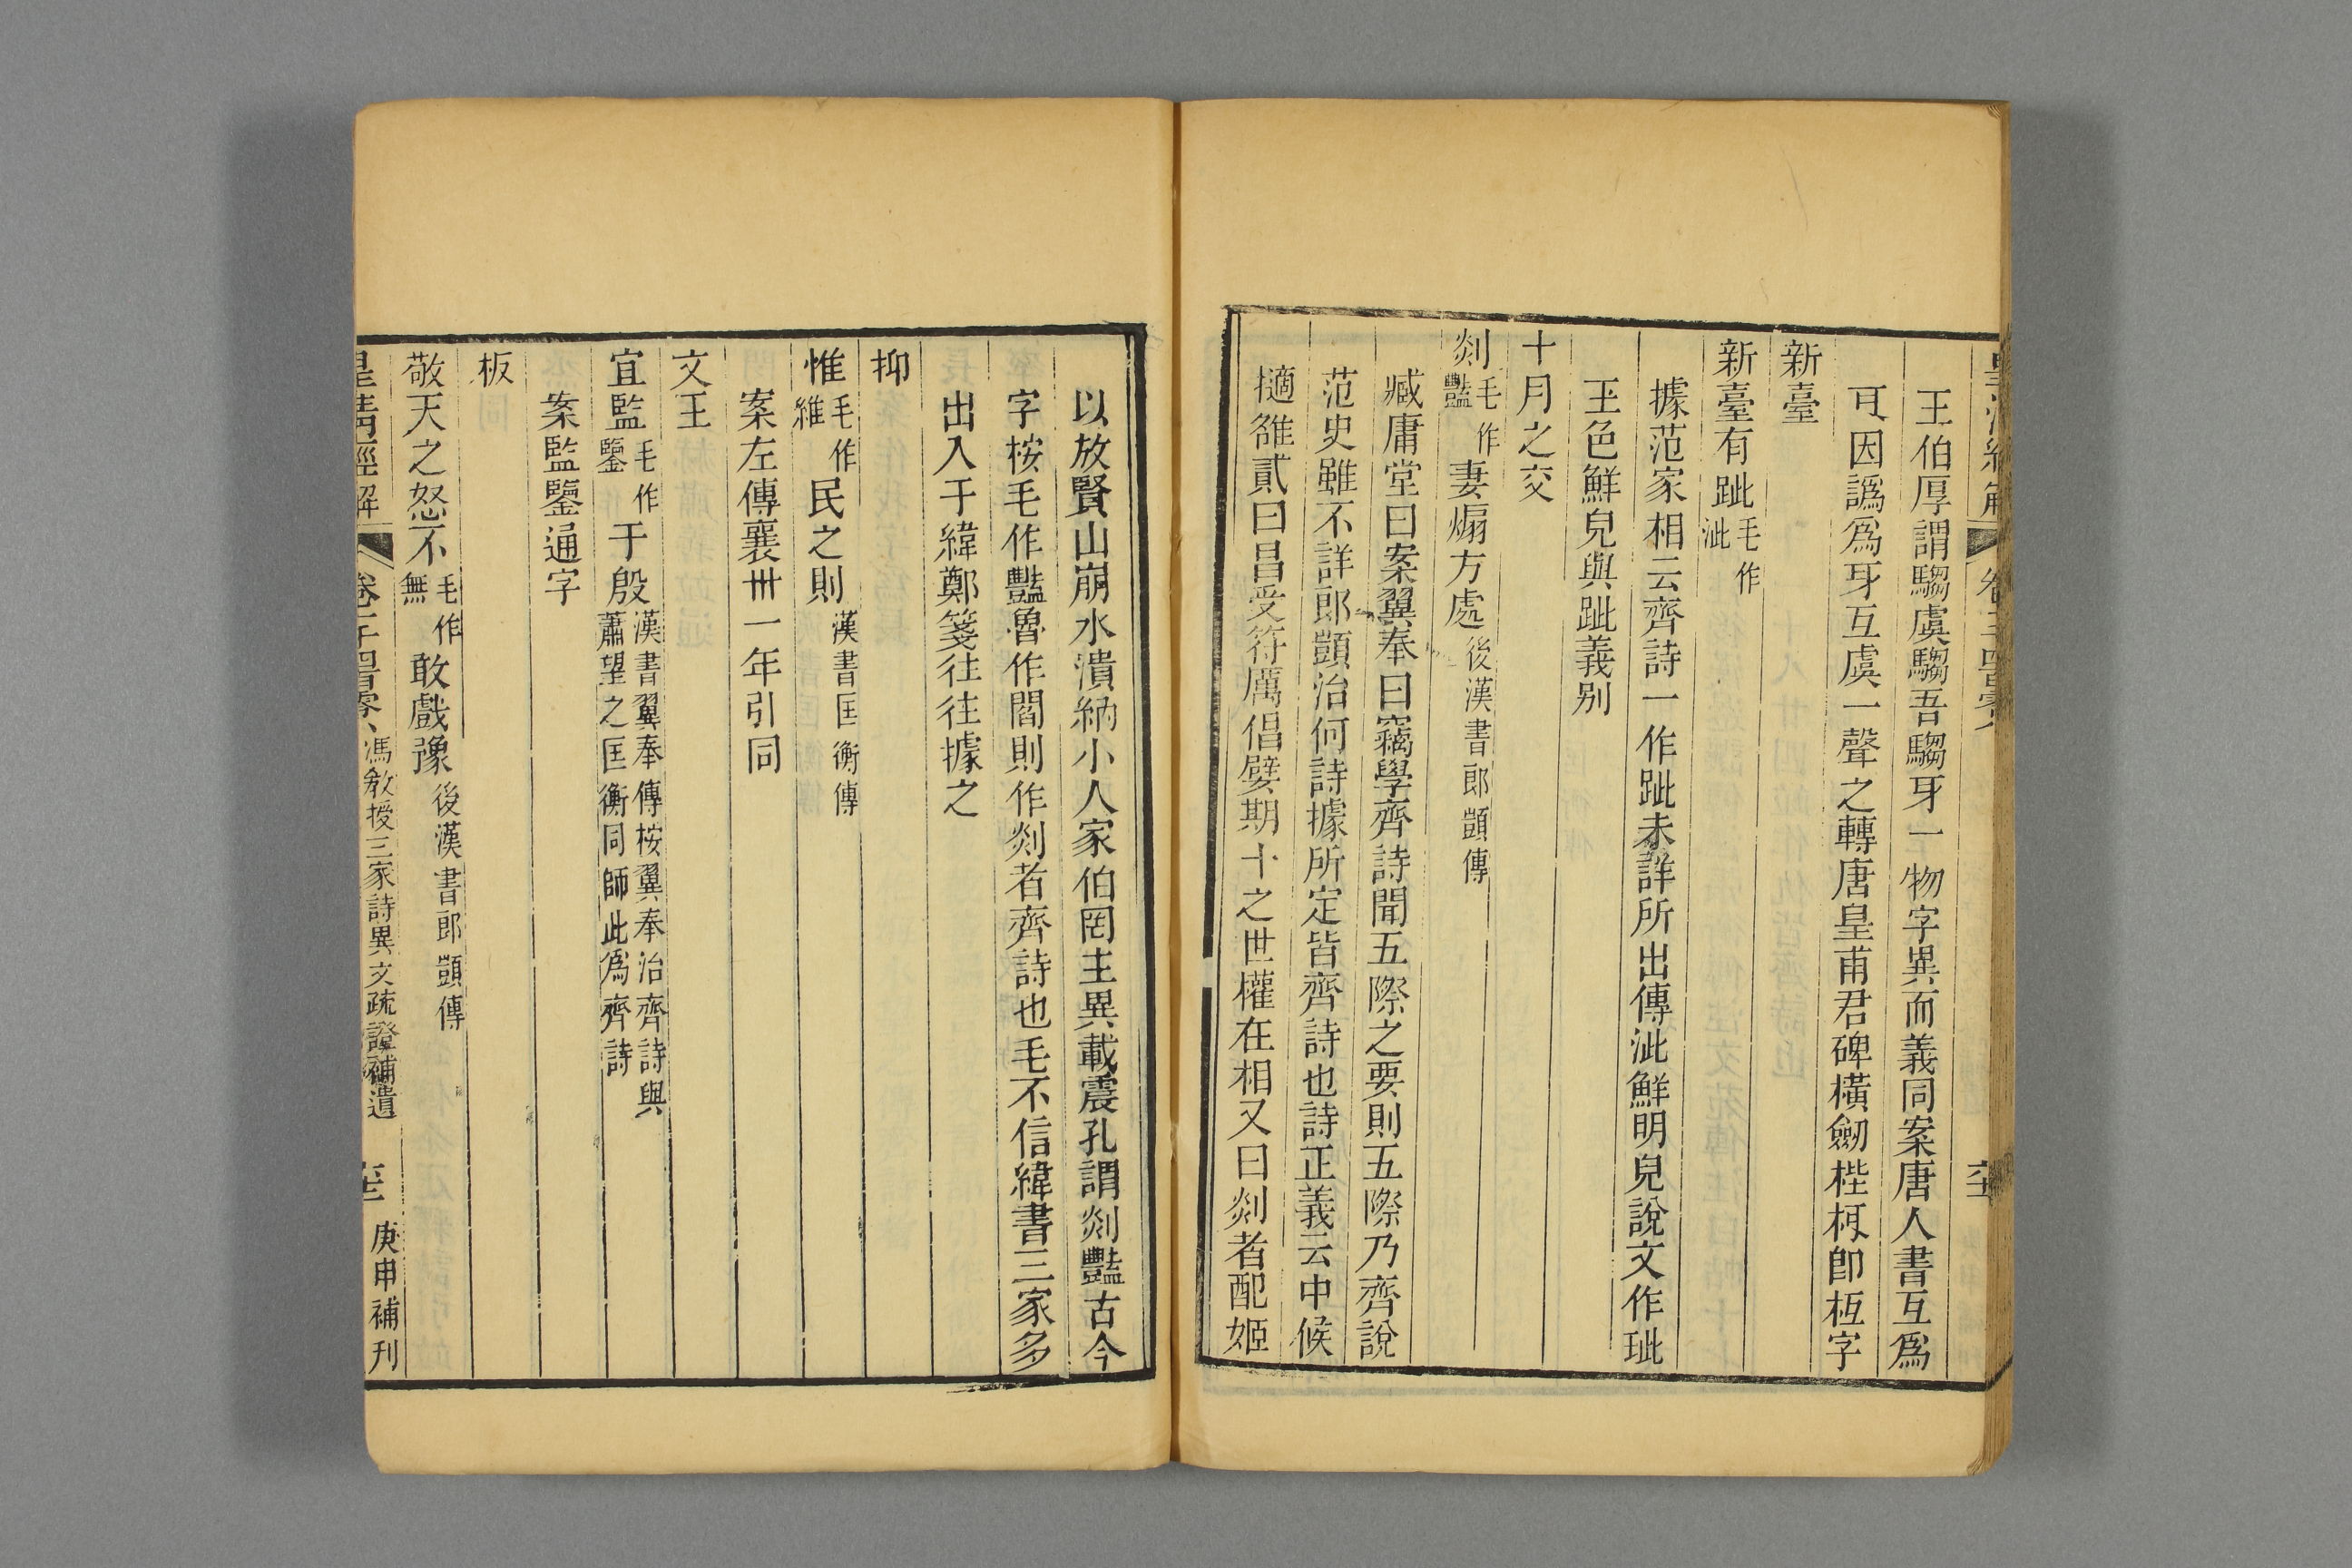 王伯厚謂騶虞騶吾騶牙一物字異而義同案唐人書互爲
㸦因譌爲牙互虞一聲之轉唐皇甫君碑橫劒梐枑卽枑字
新臺
新臺有玼毛作泚
據范家相云齊詩一作玼未詳所出傳泚鮮明皃說文作玼
玉色鮮皃與玼義别
十月之交
剡毛作豔妻煽方處後漢書郎顗傳
臧庸堂曰案翼奉曰竊學齊詩聞五際之要則五際乃齊說
范史雖不詳郎顗治何詩據所定皆齊詩也詩正義云中候
擿雒貳曰昌受符厲倡嬖期十之世權在相又曰剡者配姬
以放賢山崩水潰納小人家伯罔主異載震孔謂剡豔古今
字桉毛作豔魯作閻則作剡者齊詩也毛不信緯書三家多
出入于緯鄭箋往往據之
抑
惟毛作維民之則漢書匡衡傳
案左傳襄卅一年引同
文王
宜監毛作鑒于殷漢書翼奉傳桉翼奉治齊詩與蕭望之匡衡同師此爲齊詩
案監鑒通字
板
敬天之怒不毛作無敢戲豫後漢書郎顗傳
皇清經解 卷千四百零八 馮敎授三家詩異文疏證補遺 庚申補刊